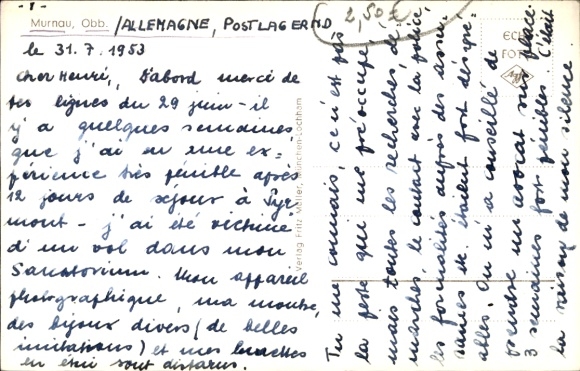 -1-
Murnau, Obb. /ALLEMAGNE, POSTLAGERND
le 31.7.1953
Cher Henri, D'abord merci de
tes lignes du 29 juin - il
y a quelques semaines
que j'ai eu une ex-
périence très pénible après
12 jours de séjour à Pyr
mont - j'ai été victime
d'un vol dans mon
Sanatorium. Mon appareil
photographique, ma montre,
des bijoux divers (de belles
imitations) et mes lunettes
en étui sont disparus.
Verlag Fritz Müller, München-Lochham
2,50
ECHT
FOTO
Agfa
Tu me connais, ce n'est pas
la perte que me préoccupe,
mais toutes les recherches, dé-
marches, le contact avec la police,
les formalités auprès des assu-
rances etc étaient fort désagré-
ables. On m'a conseillé de
prendre un avocat sur place
3 semaines fort pénibles. C'était
la raison de mon silence